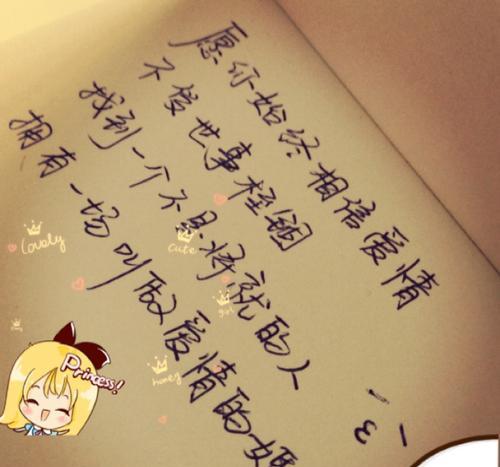 愿你始终相信爱情
不接世事桎锢
找到一个不是将就的人
拥有一场叫做爱情的
Lovely
cute
girl
honey
Princess!